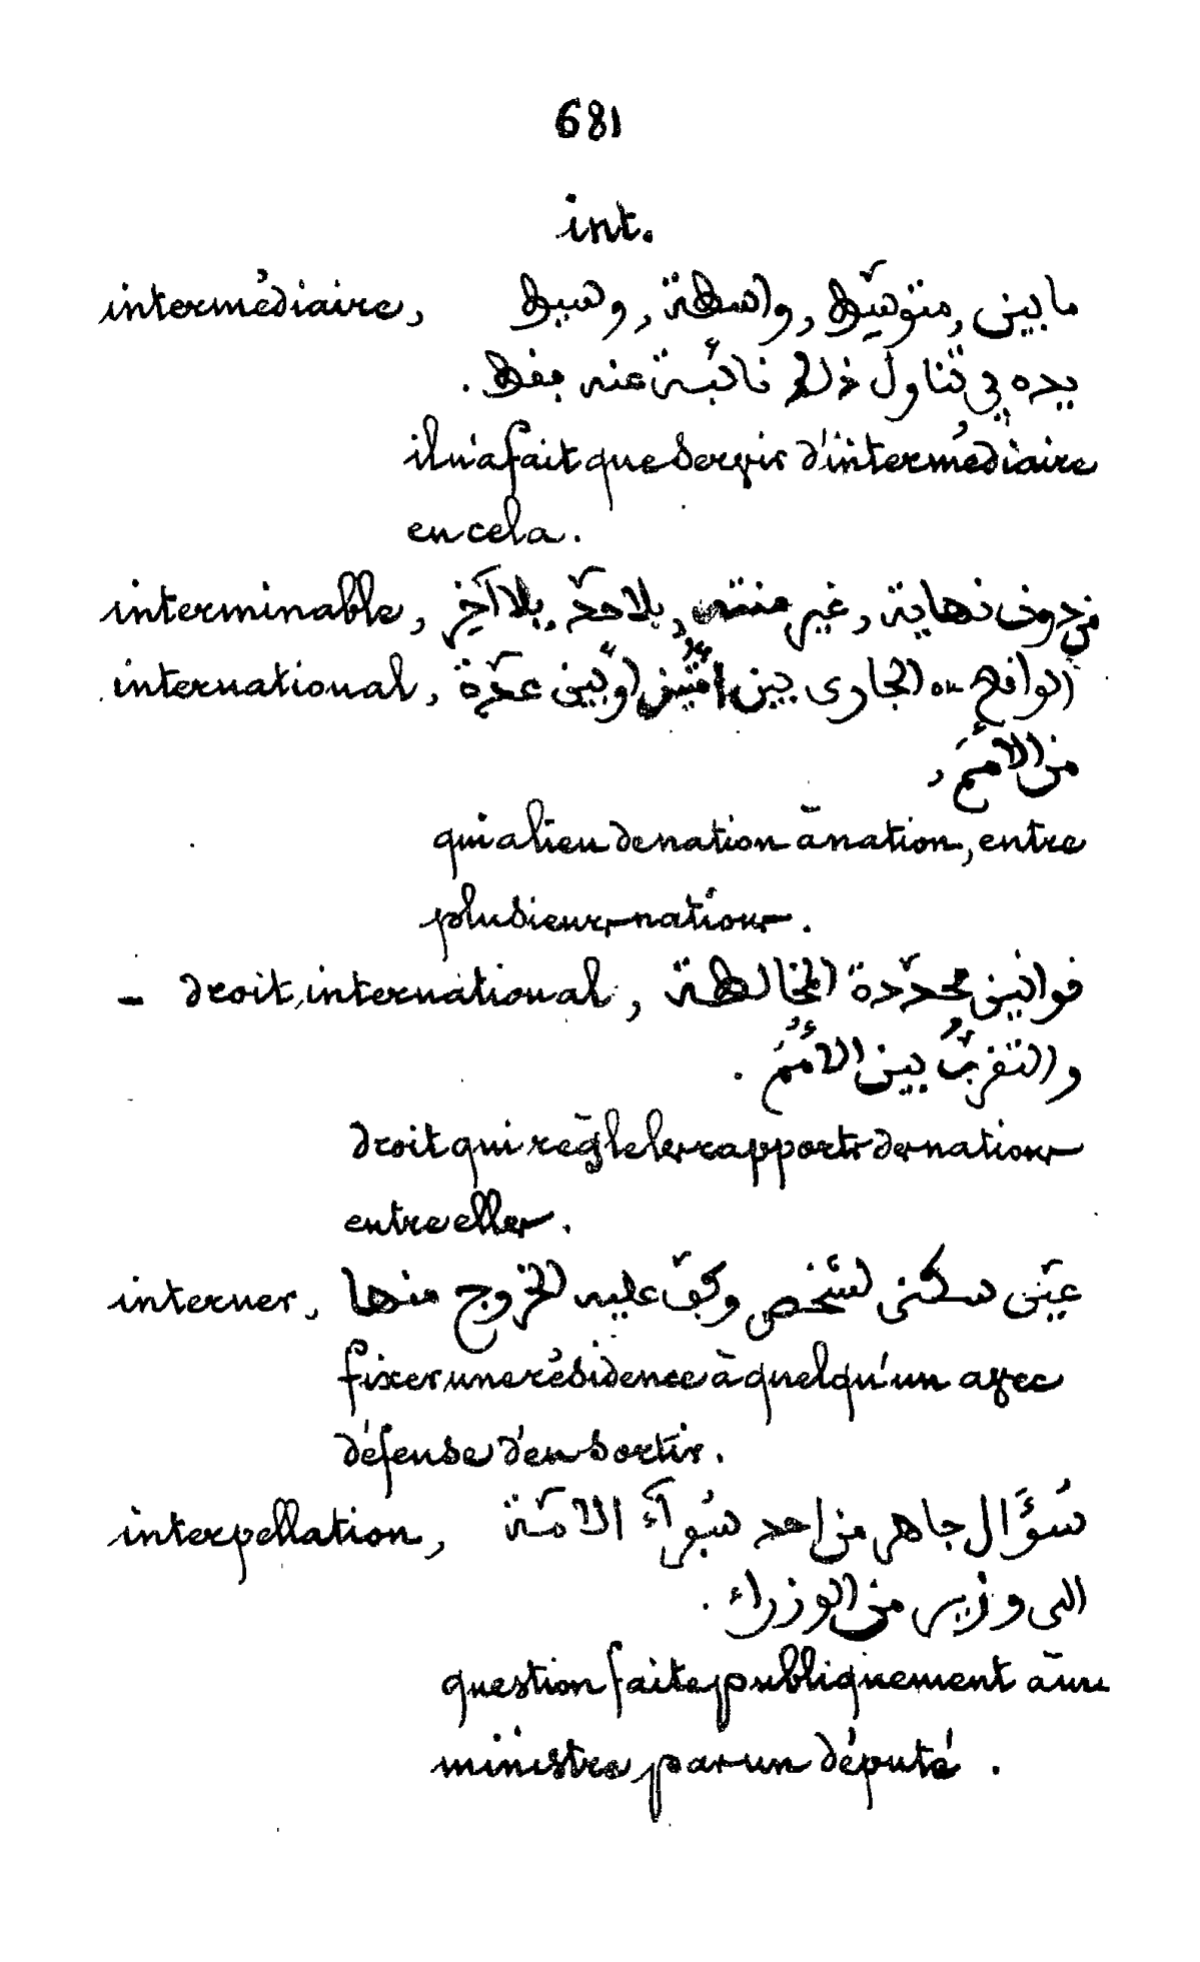 681
int.
intermédiaire, ما بين, متوسّط, واسطة, وسيط
يده في تناول ذلك نائبة عنه فقط.
il n'a fait que servir d'intermédiaire
en cela.
interminable, من دون نهاية, غير منتهى, بلا حدّ, بلا آخر
international, الواقع ou الجارى بين أمّتين او بين عدّة
من الأمم,
qui a lieu de nation à nation, entre
plusieurs nations.
- droit international, قوانين محدّدة المخالطة
والتقرّب بين الأمم.
droit qui règle les rapports des nations
entre elles.
interner, عيّن سكنى لشخص عليه الخروج منها
fixer une résidence à quelqu'un avec
défense d'en sortir.
interpellation, سؤال جاهر من احد الامّة
الى وزير من الوزراء.
question faite publiquement à un
ministre par un député.